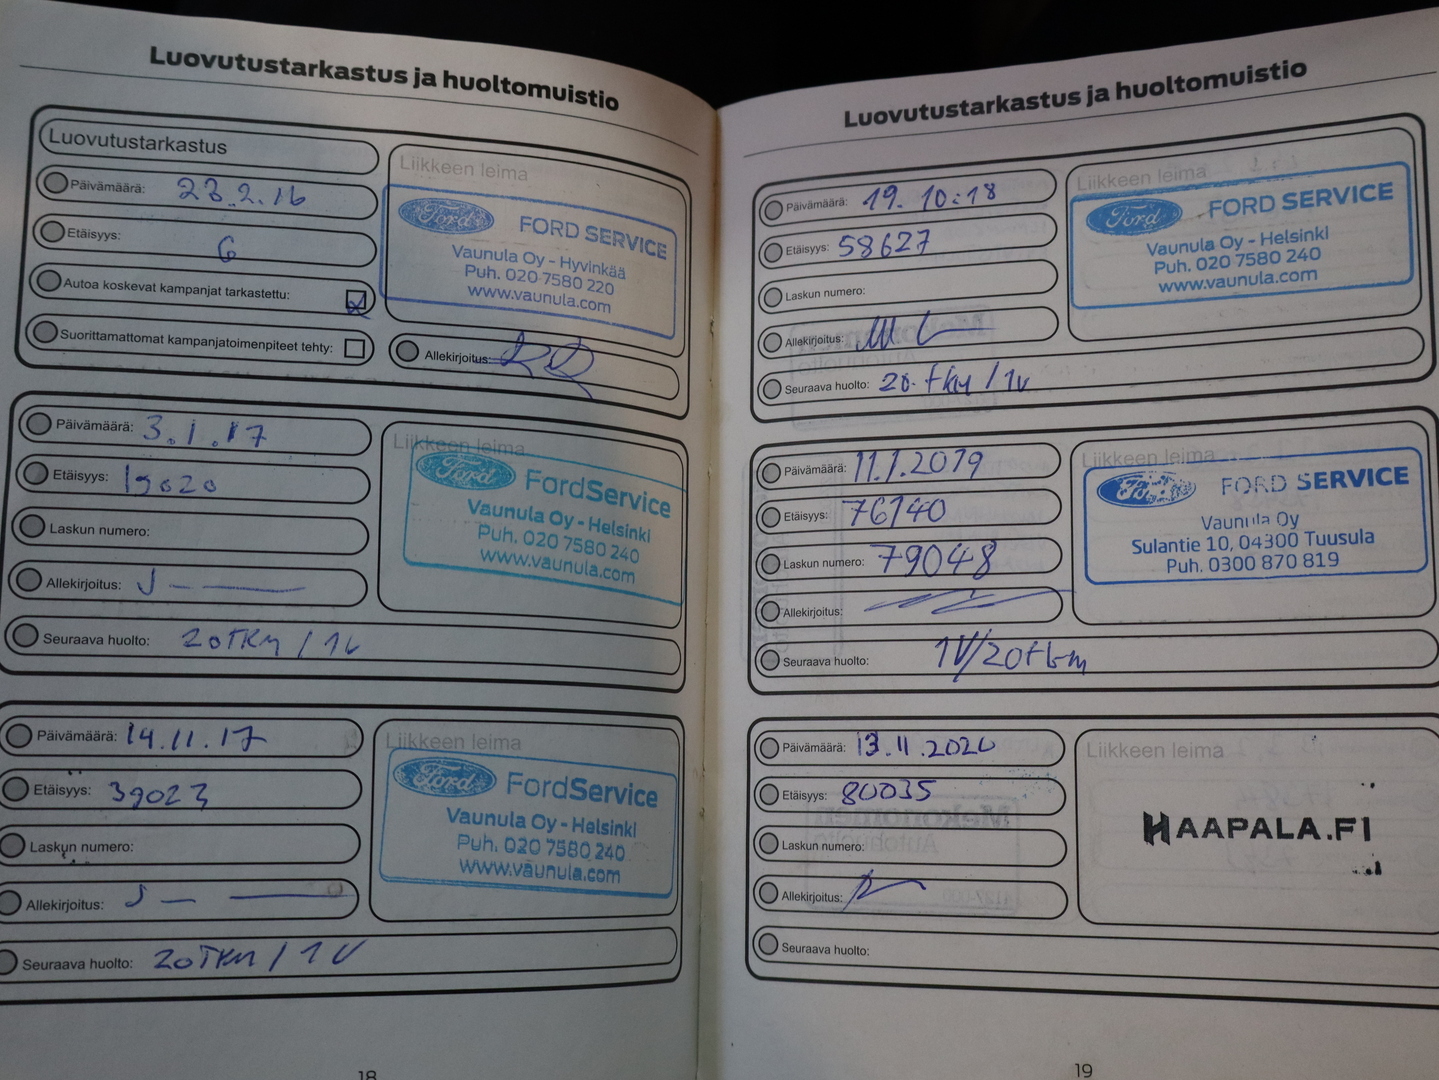 Luovutustarkastus ja huoltomuistio
Luovutustarkastus
Päivämäärä: 23.2.16
Etäisyys: 6
Autoa koskevat kampanjat tarkastettu:
Suorittamattomat kampanjatoimenpiteet tehty:
Liikkeen leima
Ford FORD SERVICE
Vaunula Oy - Hyvinkää
Puh. 020 7580 220
www.vaunula.com
Allekirjoitus:
Päivämäärä: 3.1.17
Etäisyys: 19020
Laskun numero:
Allekirjoitus:
Seuraava huolto: 20TKM / 1V
Liikkeen leima
Ford FordService
Vaunula Oy - Helsinki
Puh. 020 7580 240
www.vaunula.com
Päivämäärä: 14.11.17
Etäisyys: 39023
Laskun numero:
Allekirjoitus:
Seuraava huolto: 20TKM / 1V
Liikkeen leima
Ford FordService
Vaunula Oy - Helsinki
Puh. 020 7580 240
www.vaunula.com
18
Luovutustarkastus ja huoltomuistio
Päivämäärä: 19.10.18
Etäisyys: 58627
Laskun numero:
Allekirjoitus:
Seuraava huolto: 20.tkm / 1v
Liikkeen leima
Ford FORD SERVICE
Vaunula Oy - Helsinki
Puh. 020 7580 240
www.vaunula.com
Päivämäärä: 11.1.2019
Etäisyys: 76140
Laskun numero: 79048
Allekirjoitus:
Seuraava huolto: 1V/20tkm
Liikkeen leima
Ford FORD SERVICE
Vaunula Oy
Sulantie 10, 04300 Tuusula
Puh. 0300 870 819
Päivämäärä: 13.11.2020
Etäisyys: 80035
Laskun numero:
Allekirjoitus:
Seuraava huolto:
Liikkeen leima
HAAPALA.FI
19